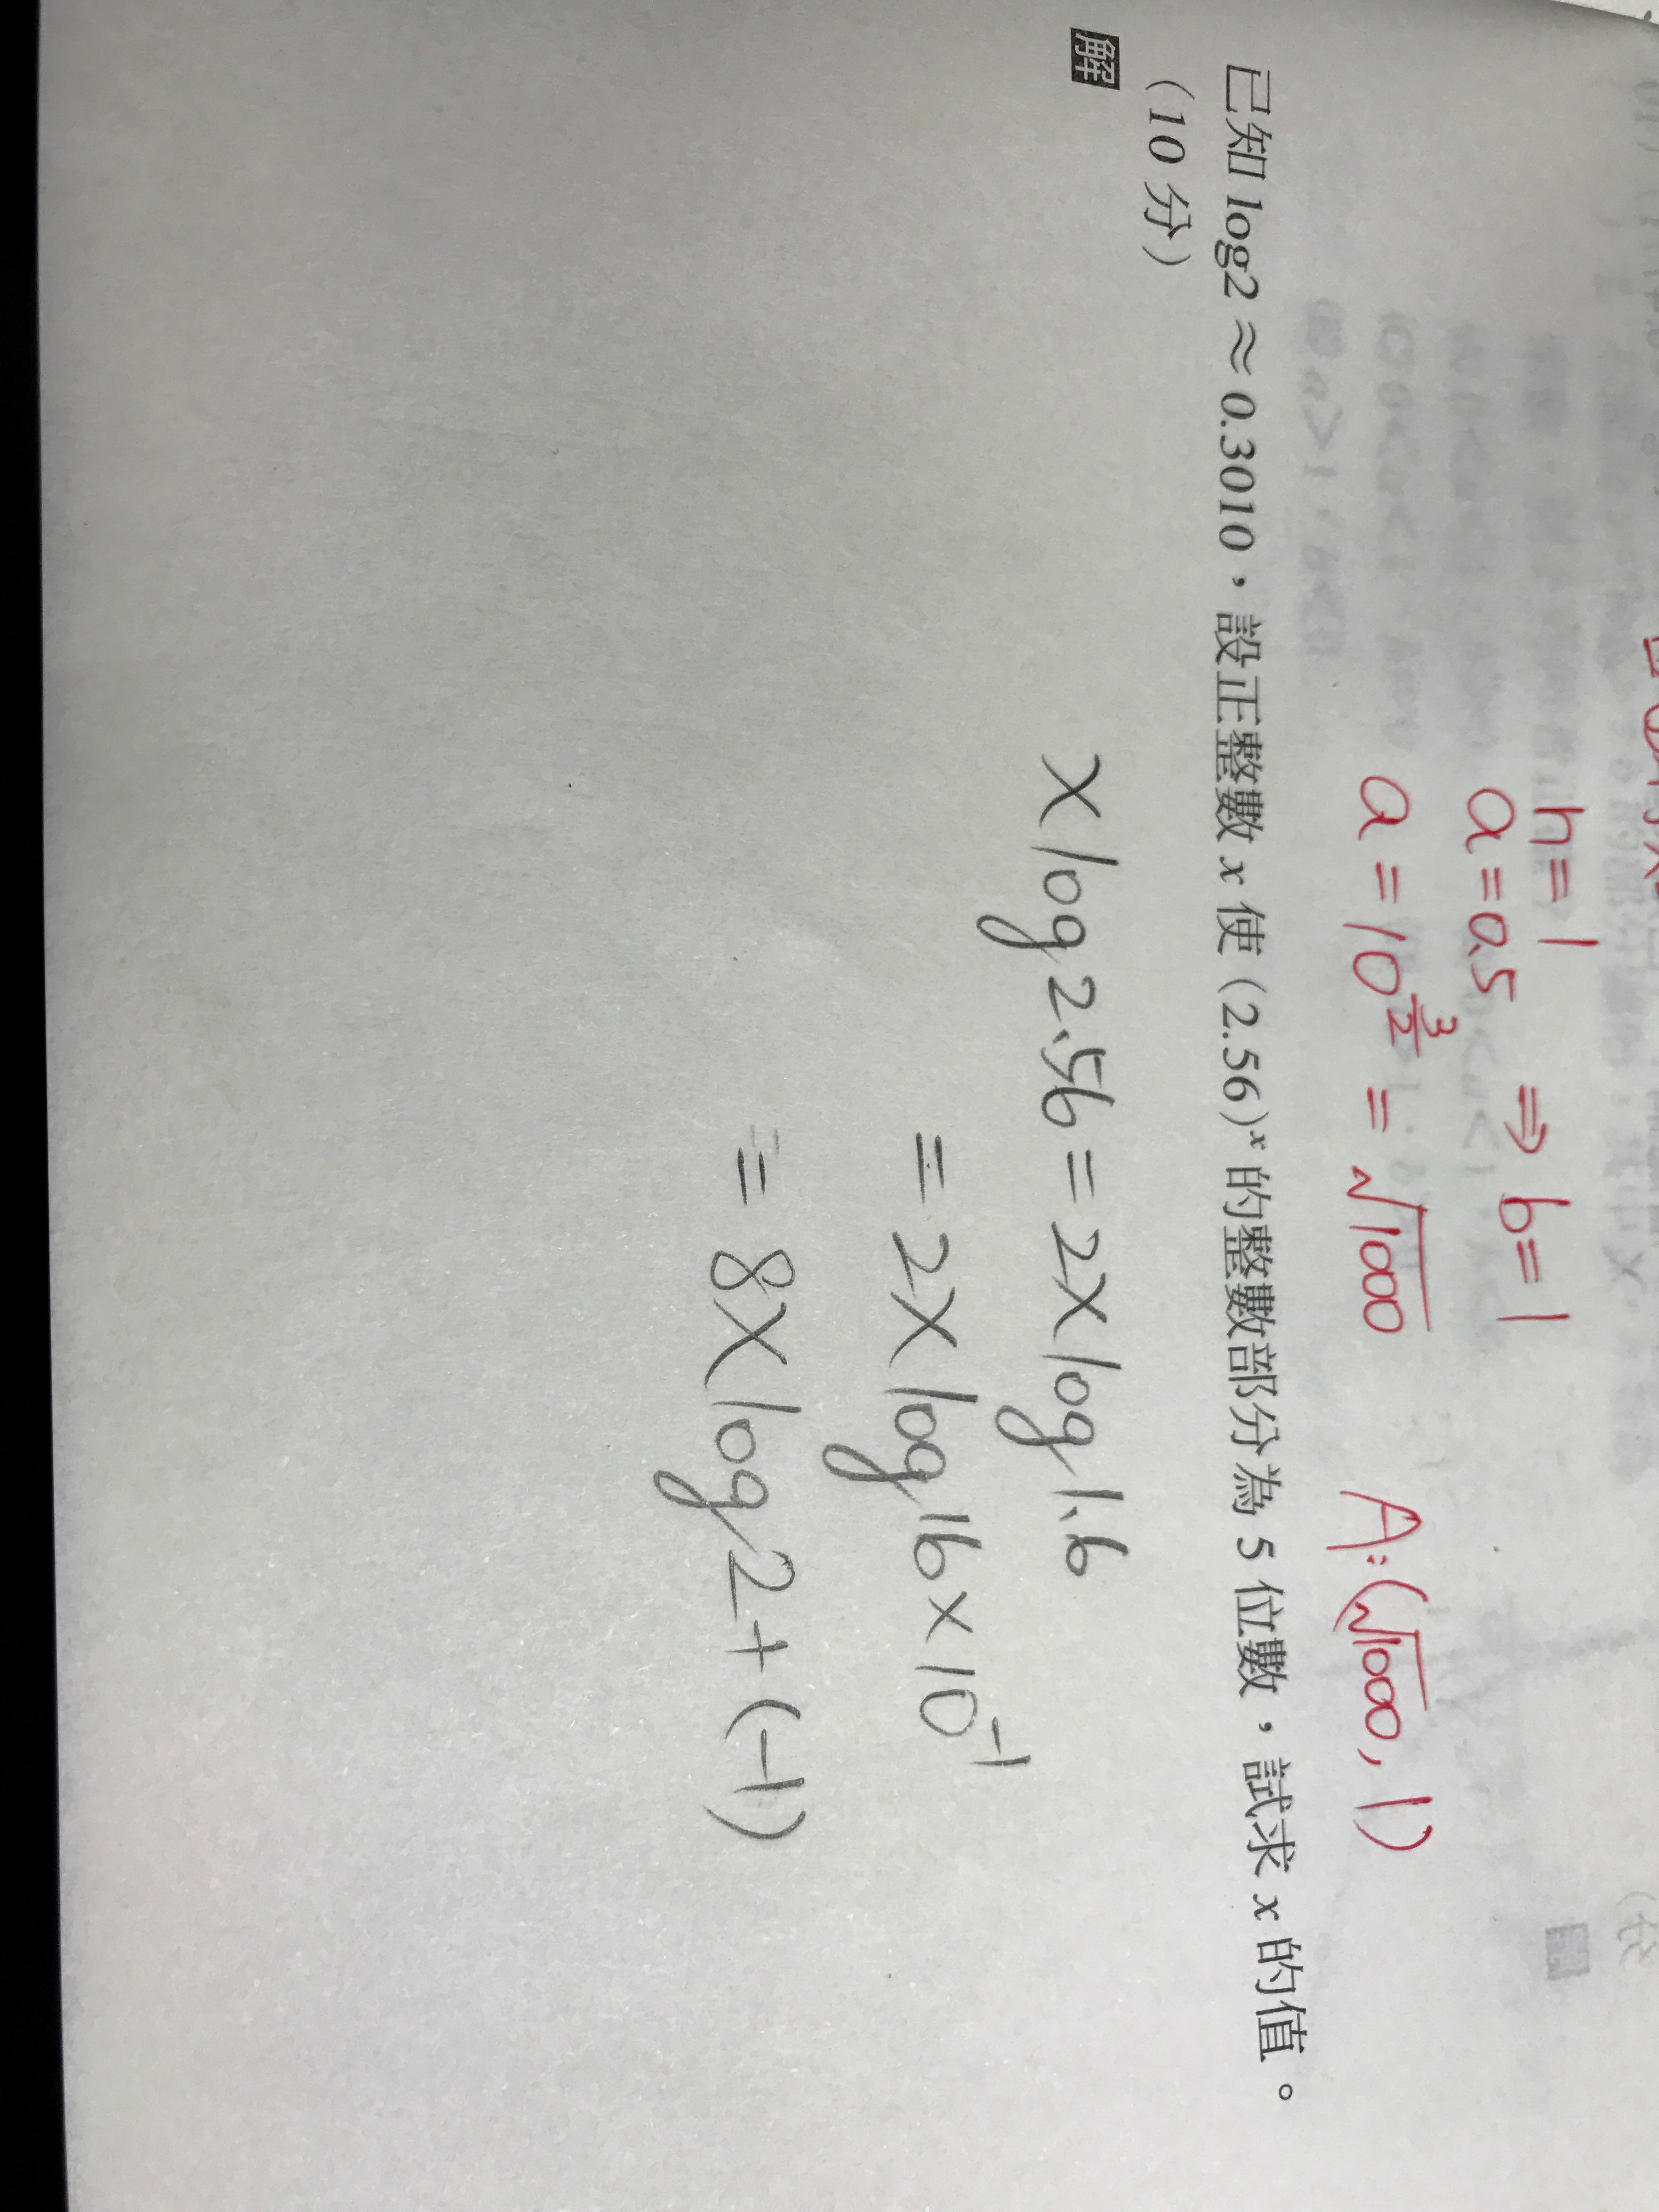 h=1
a=0.5 ⇒ b=1
a=10^{3/2} = √1000 A:(√1000, 1)
已知 log2 ≈ 0.3010，設正整數 x 使 (2.56)^x 的整數部分為 5 位數，試求 x 的值。
（10 分）
解
x log 2.56 = 2x log 1.6
= 2x log 16 × 10^{-1}
= 8x log 2 + (-1)